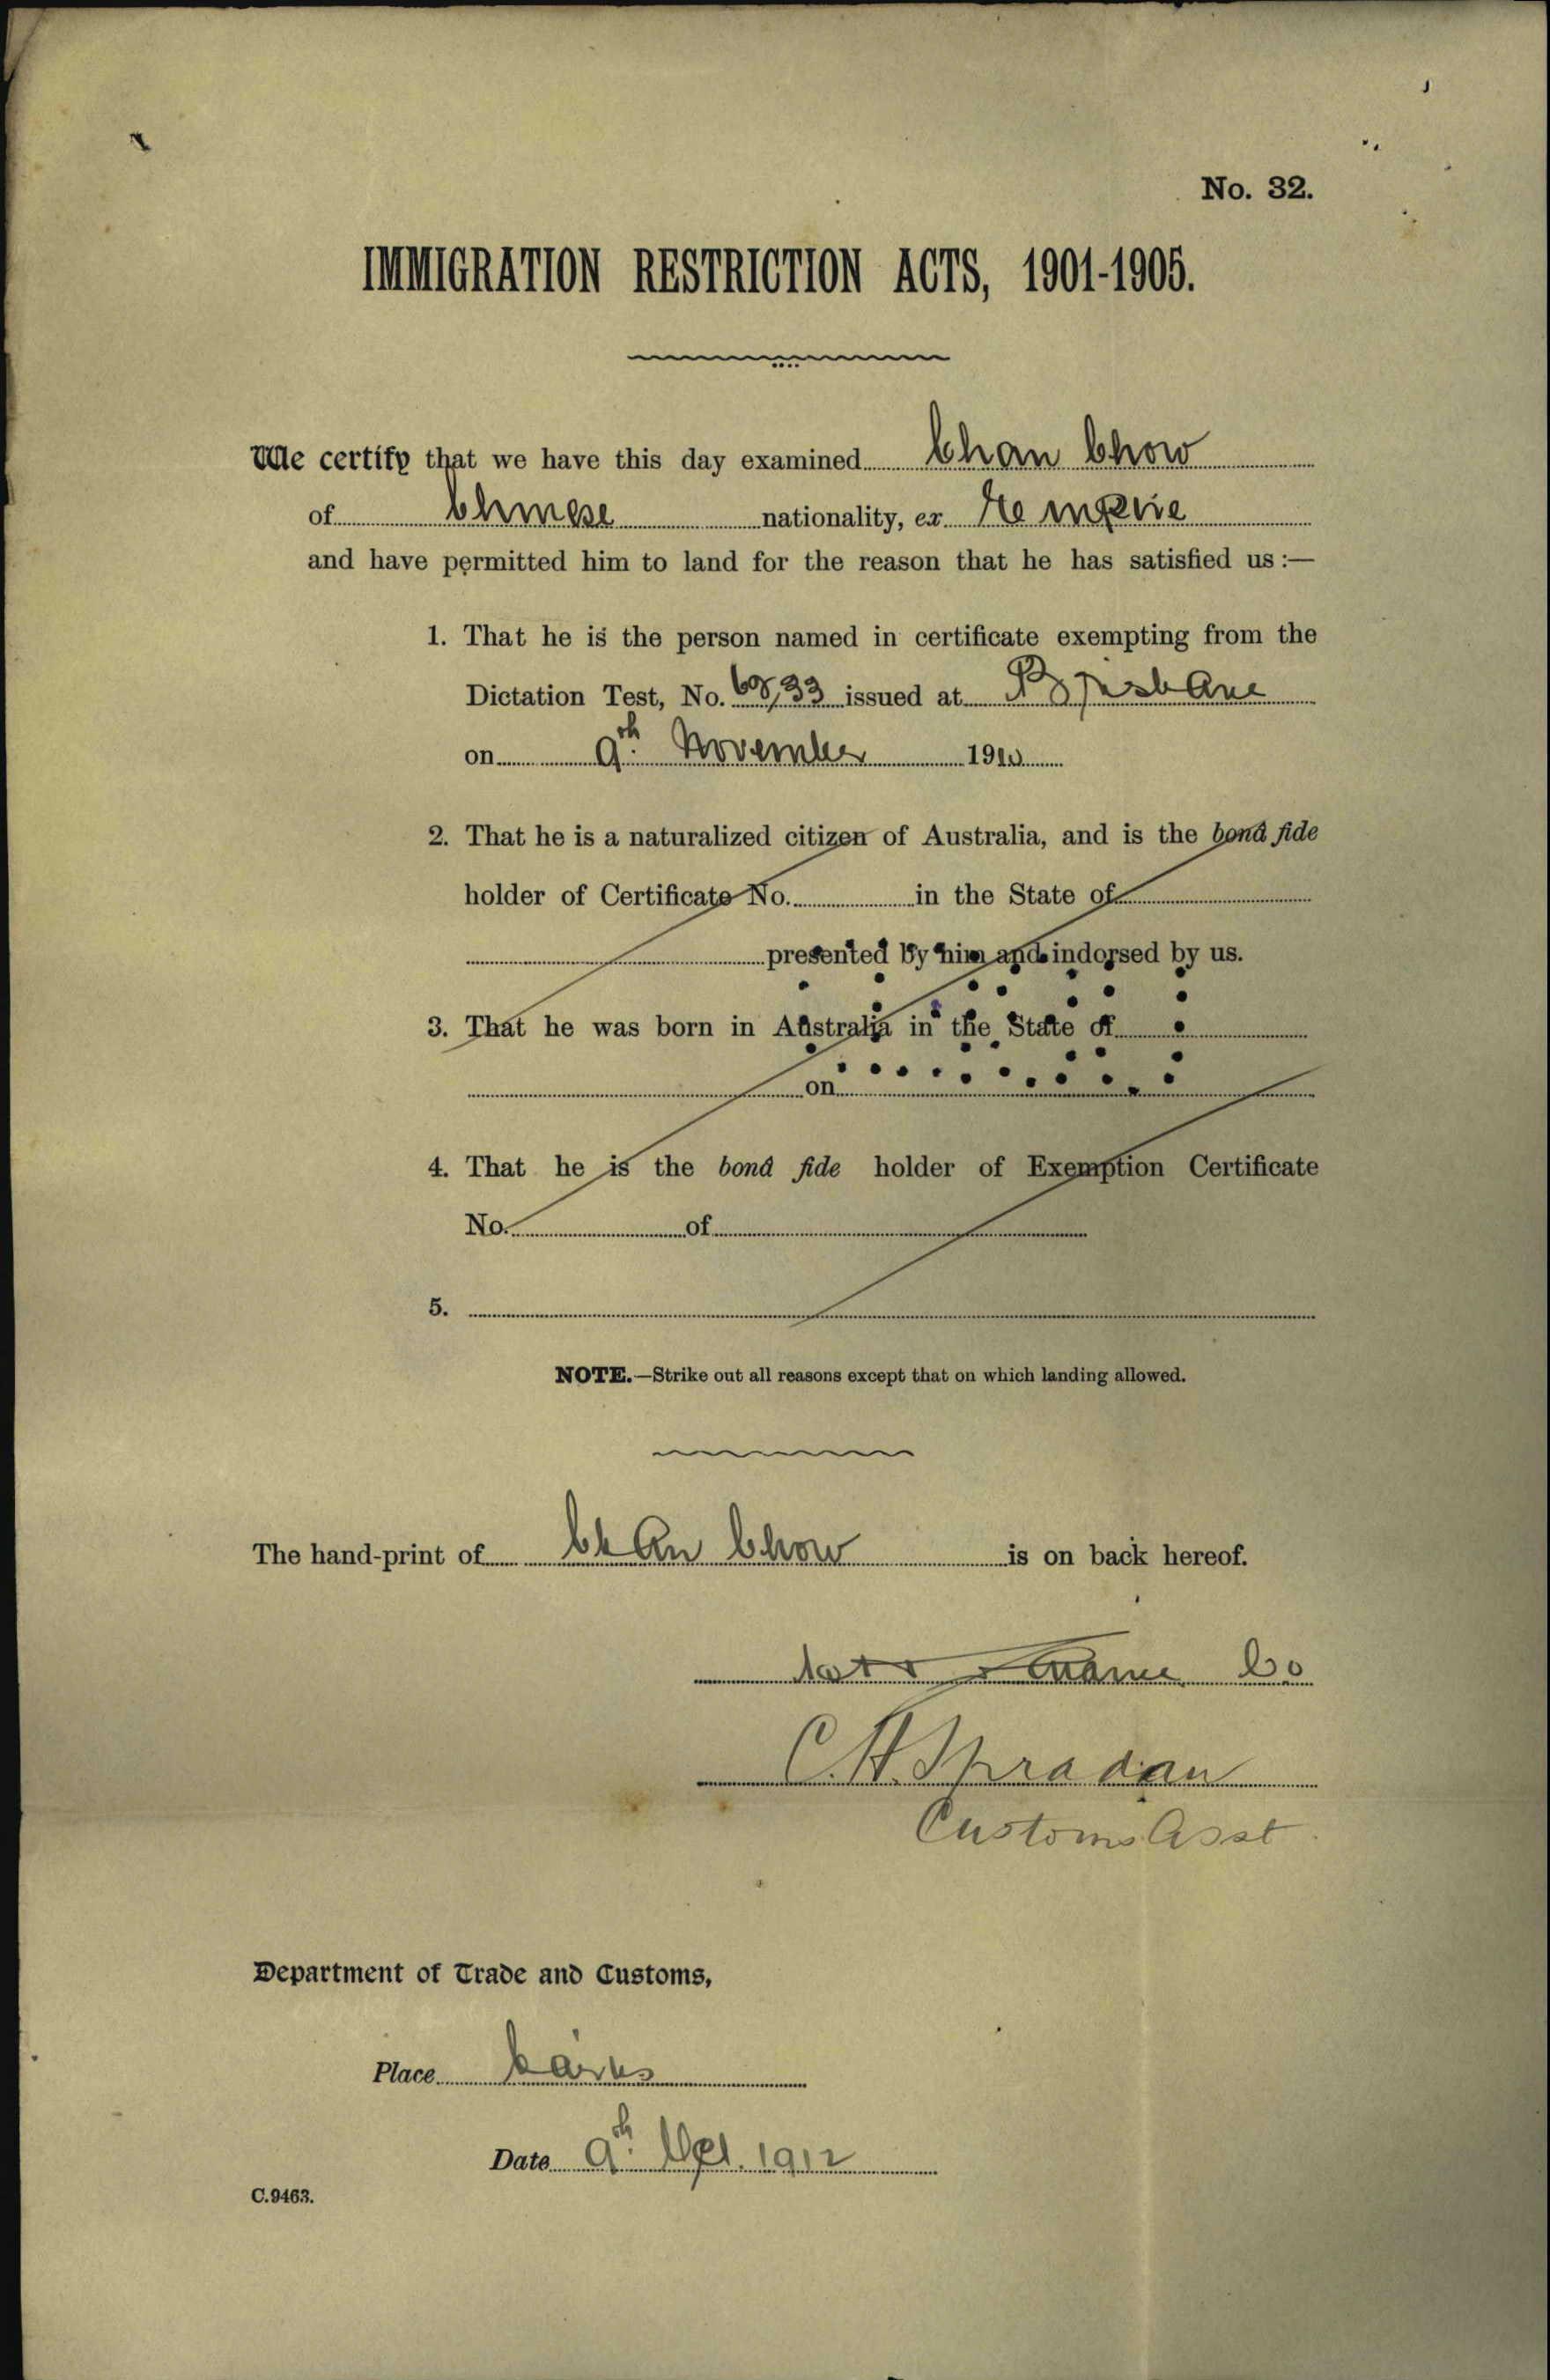 No. 32.
IMMIGRATION RESTRICTION ACTS, 1901-1905.
We certify that we have this day examined Chan Chow
of Chinese nationality, ex Empire
and have permitted him to land for the reason that he has satisfied us :—
1. That he is the person named in certificate exempting from the
Dictation Test, No. issued at Brisbane
on 9th November 1910
2. That he is a naturalized citizen of Australia, and is the bonâ fide
holder of Certificate No. in the State of
presented by him and indorsed by us.
3. That he was born in Australia in the State of
on
4. That he is the bonâ fide holder of Exemption Certificate
No. of
5.
NOTE.—Strike out all reasons except that on which landing allowed.
The hand-print of Chan Chow is on back hereof.
Co
C. H. Spradan
Customs Asst
Department of Trade and Customs,
Place Cairns
Date 9th 1912
C.9463.